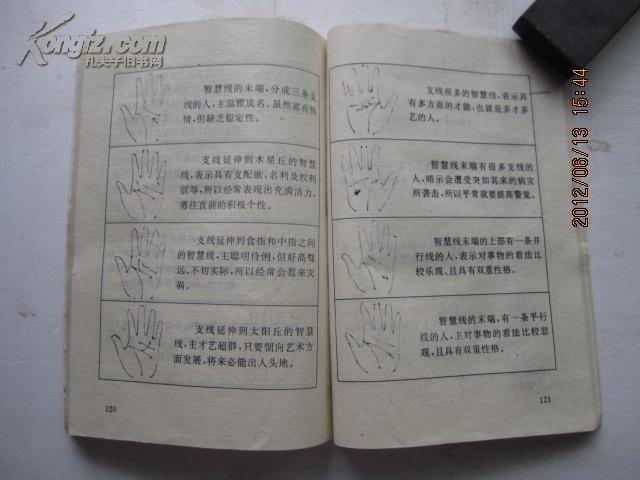 Kongfz.com
孔夫子旧书网
智慧线的末端，分成三条支
线的人，主温雅成名。虽然富有热
情，但缺乏稳定性。
支线延伸到木星丘的智慧
线，表示具有支配欲、名利及权利
欲等，所以经常表现出充满活力，
勇往直前的积极个性。
支线延伸到食指和中指之间
的智慧线，主聪明伶俐，但好高骛
远、不切实际，所以经常会惹来灾
祸。
支线延伸到太阳丘的智慧
线，主才艺超群，只要朝向艺术方
面发展，将来必能出人头地。
120
支线很多的智慧线，表示具
有多方面的才能，也就是多才多
艺的人。
智慧线末端有很多支线的
人、暗示会遭受突如其来的病灾
所袭击，所以平常就要提高警觉。
智慧线末端的上部有一条并
行线的人，表示对事物的看法比
较乐观、且具有双重性格。
智慧线的末端，有一条平行
线的人，主对事物的看法比较悲
观，且具有双重性格。
121
2012/06/13 15:44